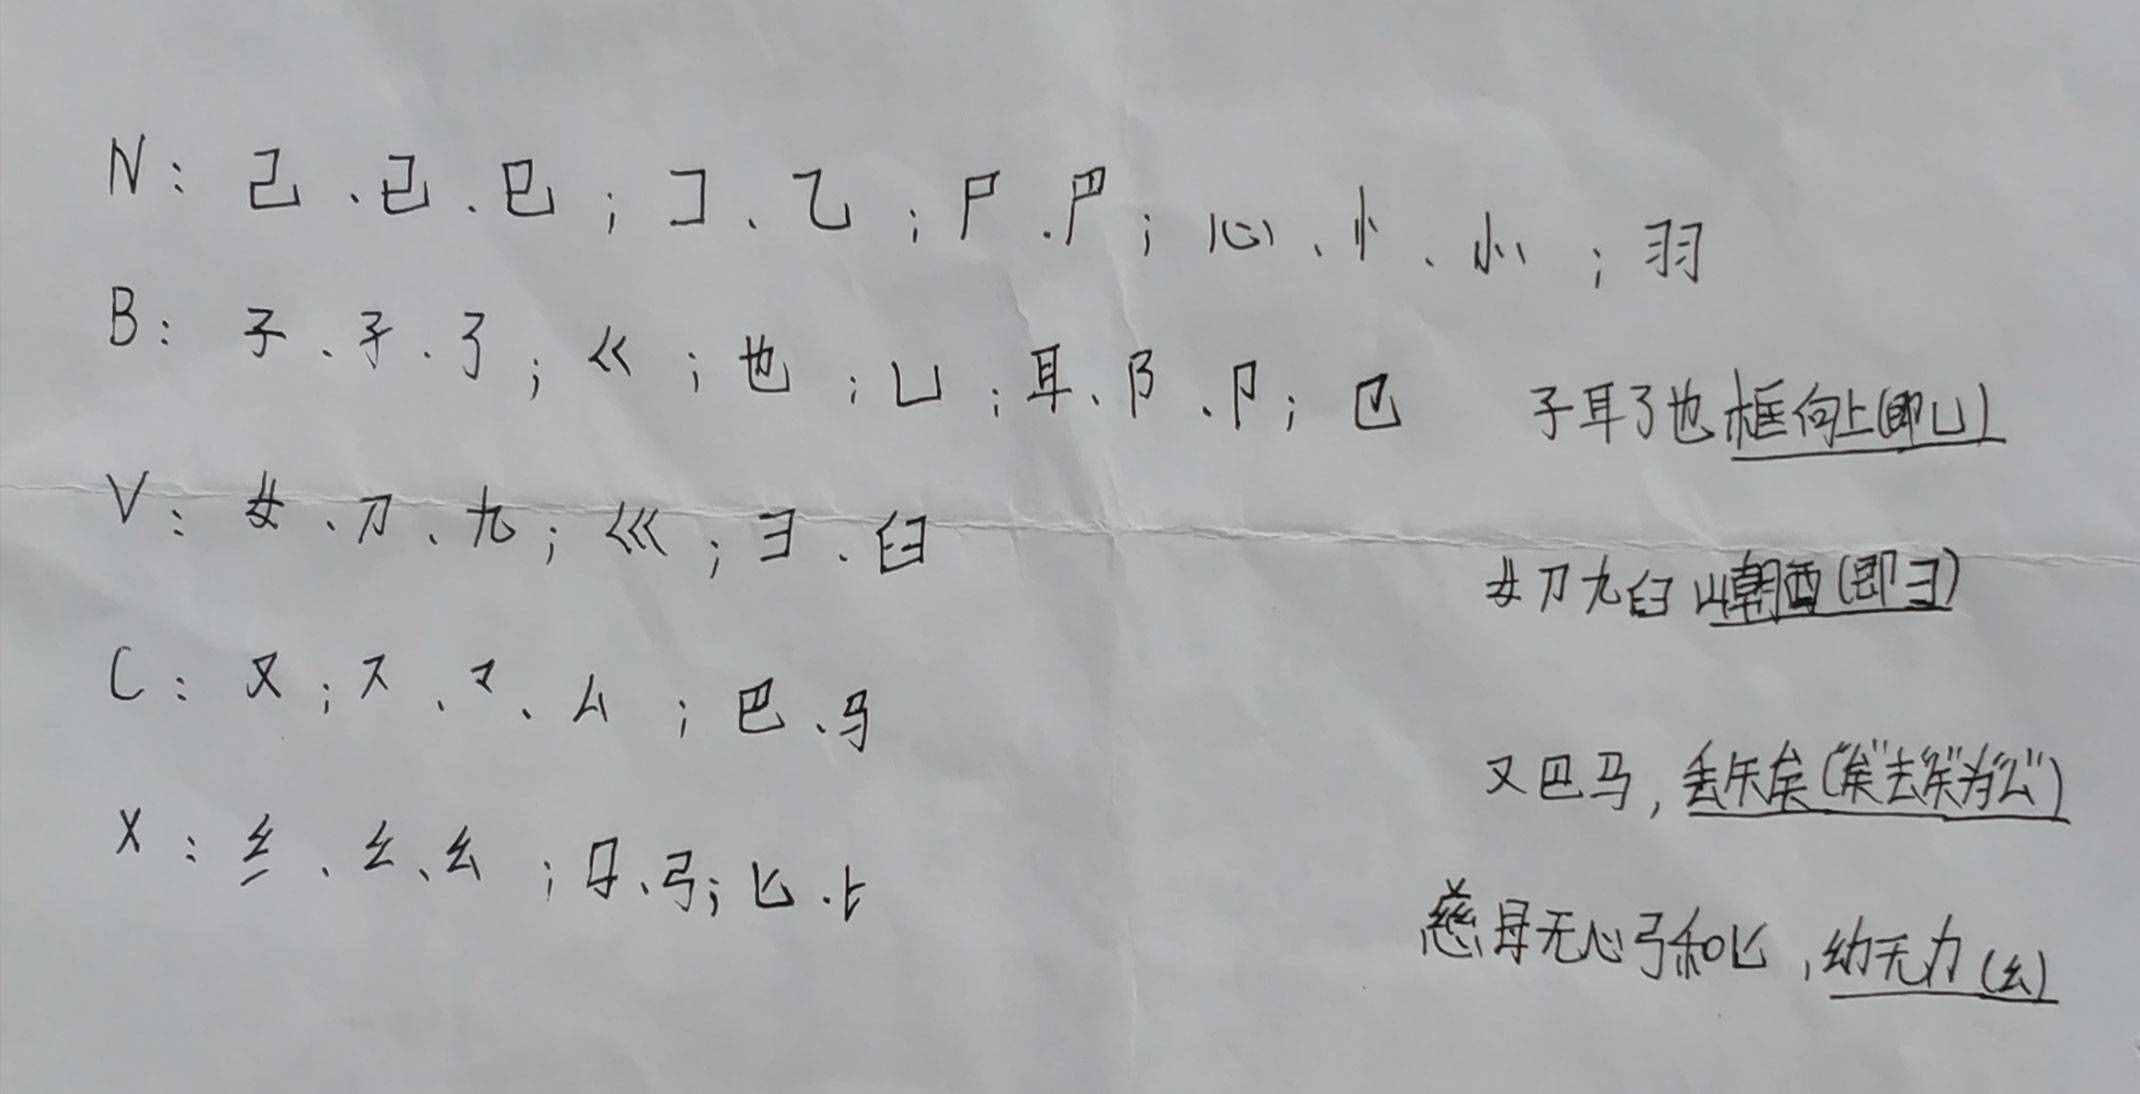 N：己、已、巳；コ、乙；尸、𠃜；心、忄、㣺；羽
B：子、孑、了；巜；也；凵；耳、阝、卩；㔾 子耳了也框向上(即凵)
V：女、刀、九；巛；彐、臼 女刀九臼山朝西(即彐)
C：又；ス、マ、厶；巴、马 又巴马，丢矢矣("矣"去"矢"为"厶")
X：纟、幺、幺；母、弓；匕、 慈母无心弓和匕，幼无力(幺)